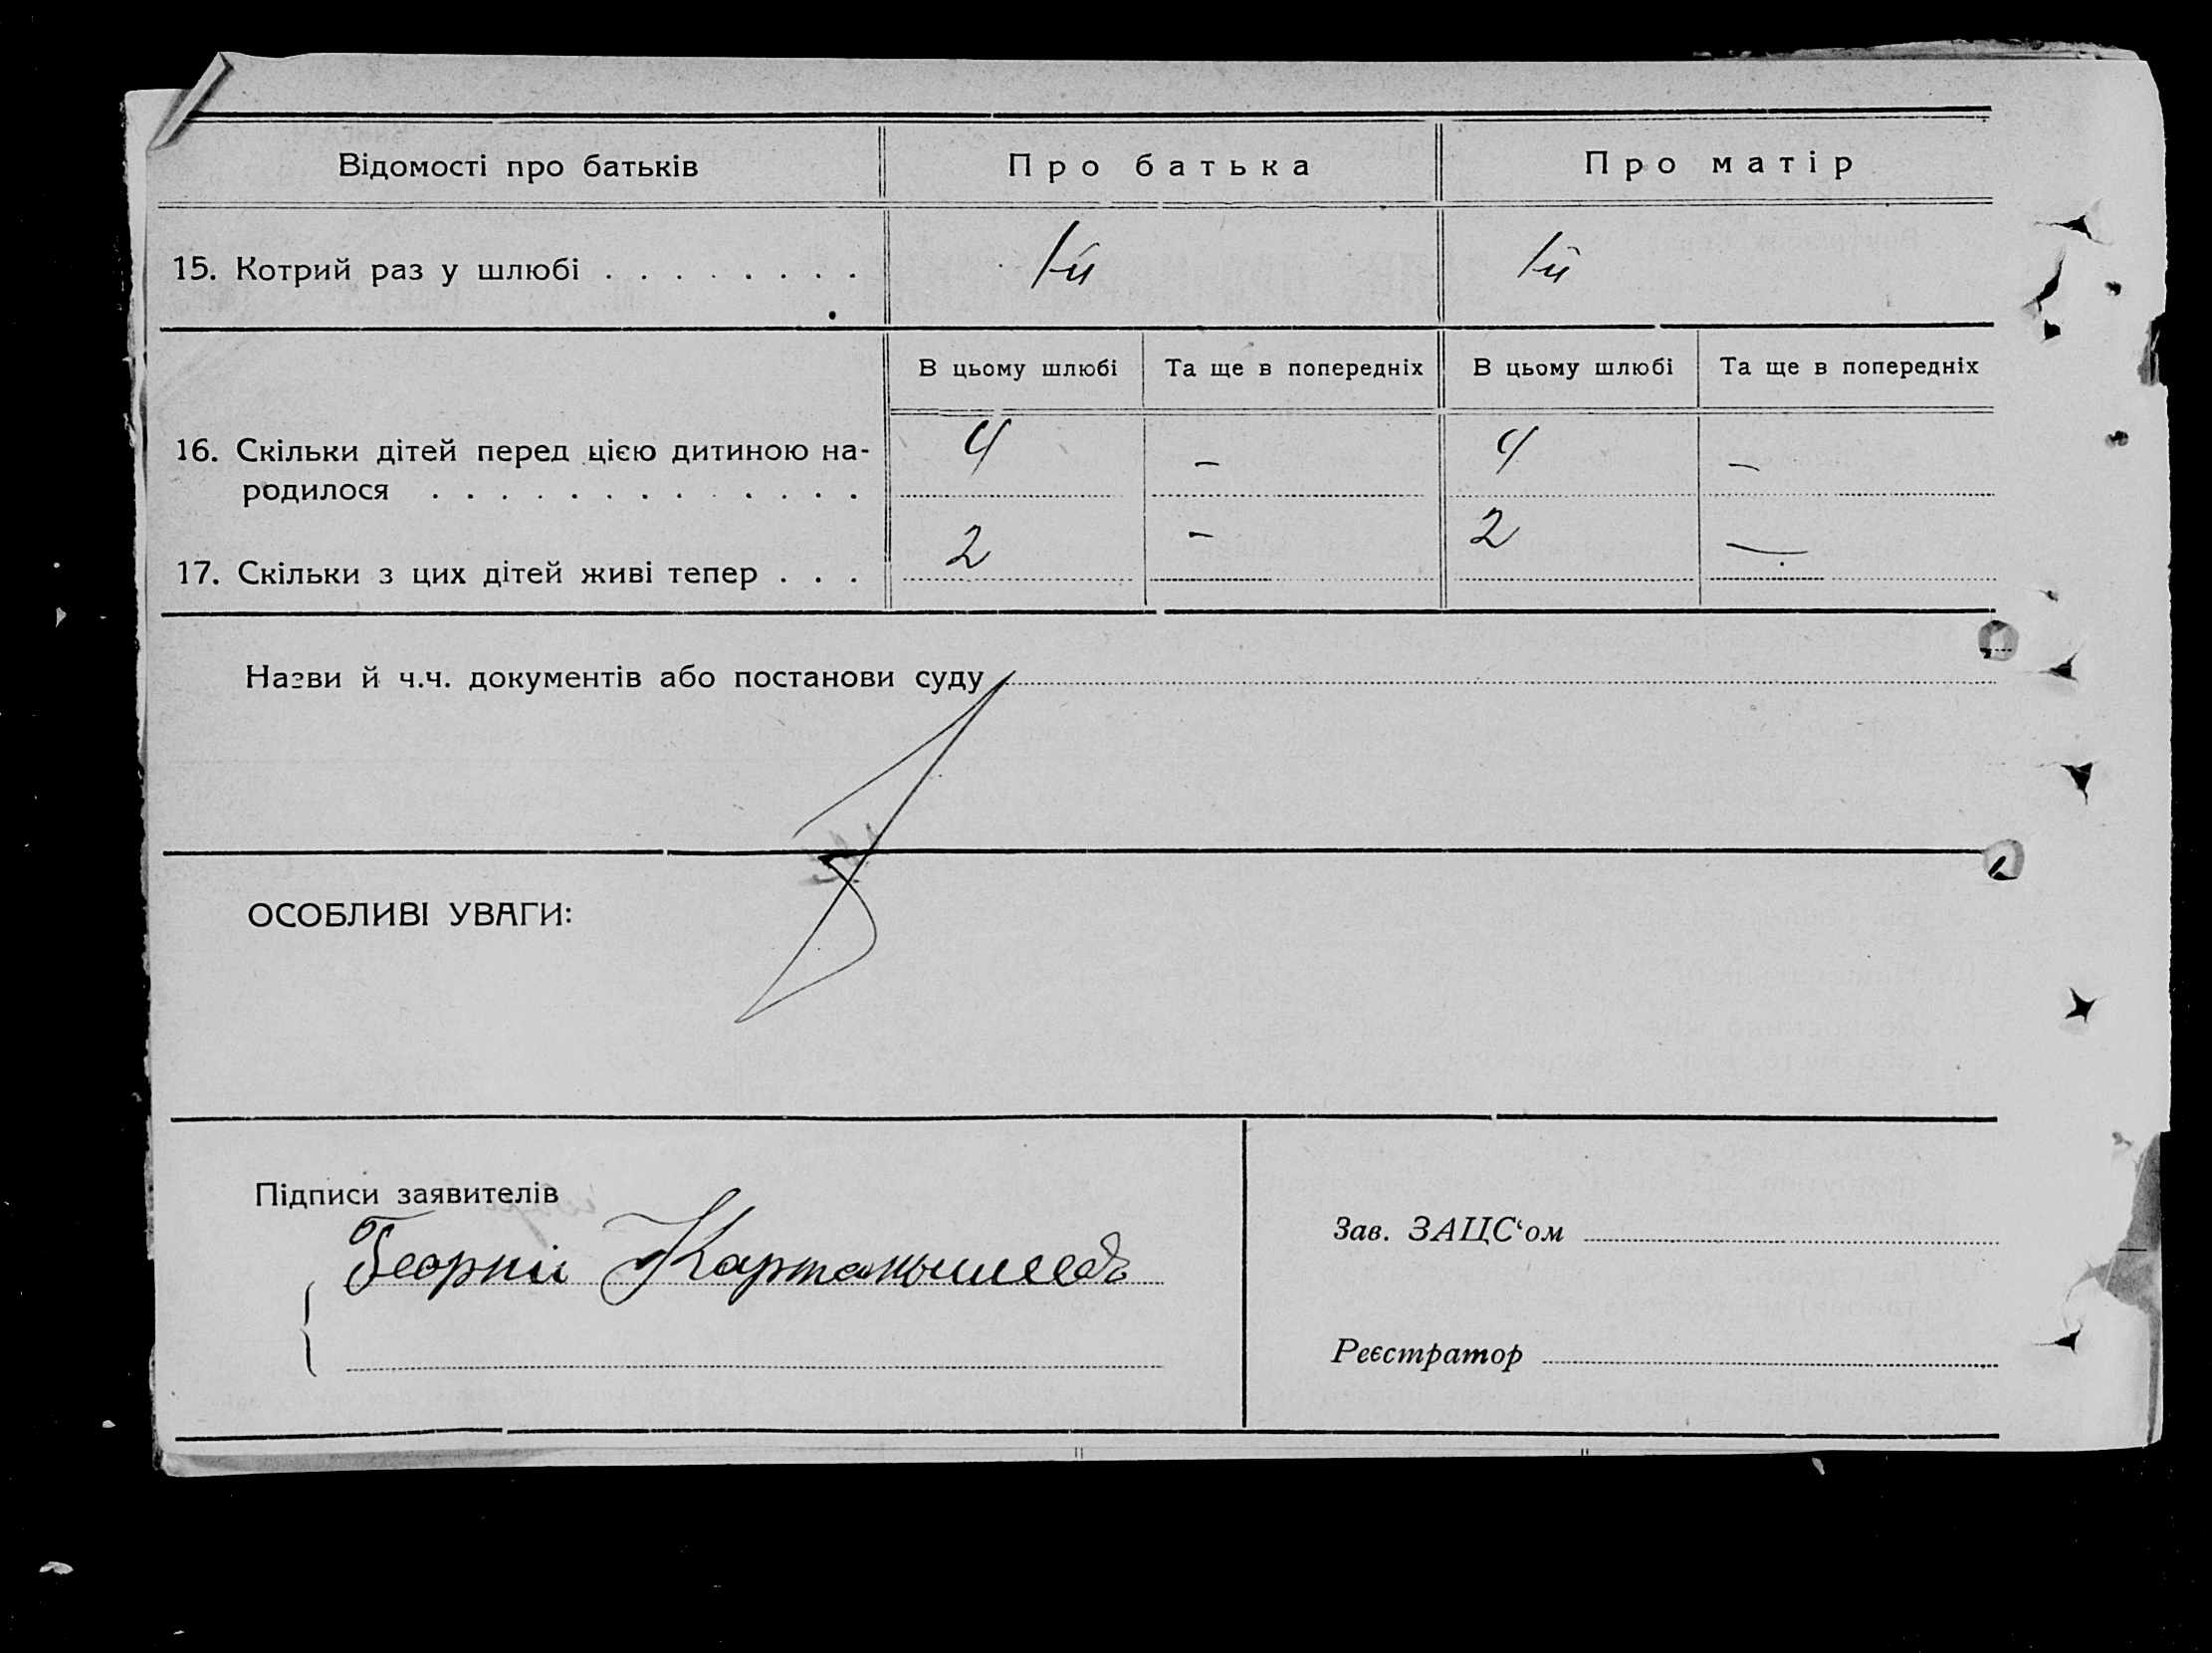 Відомості про батьків
Про батька
Про матір
15. Котрий раз у шлюбі . . . . . . . .
1-й
1-й
В цьому шлюбі
Та ще в попередніх
В цьому шлюбі
Та ще в попередніх
16. Скільки дітей перед цією дитиною на-
родилося . . . . . . . . . . . . .
4
–
4
–
17. Скільки з цих дітей живі тепер . . .
2
–
2
–
Назви й ч.ч. документів або постанови суду
ОСОБЛИВІ УВАГИ:
Підписи заявителів
Георгий
Зав. ЗАЦС‘ом
Реєстратор